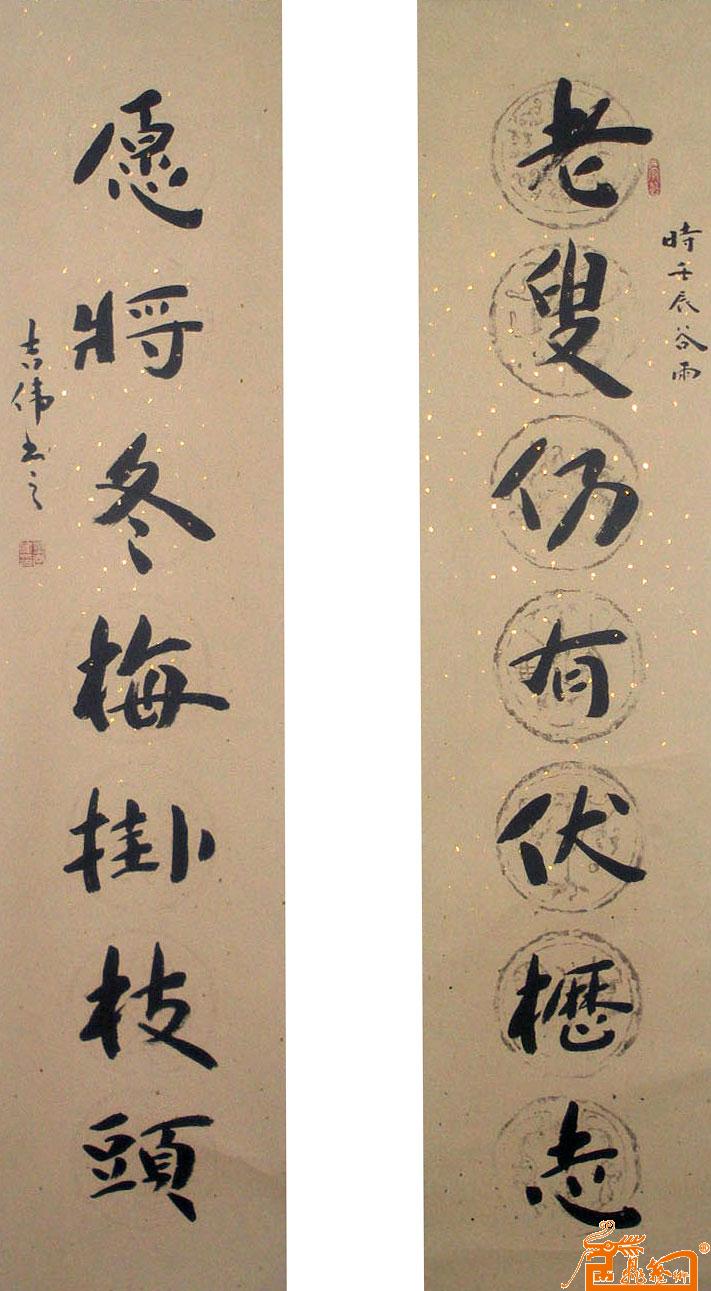 老叟仍有伏櫪志
時壬辰谷雨
愿將冬梅掛枝頭
吉伟书之